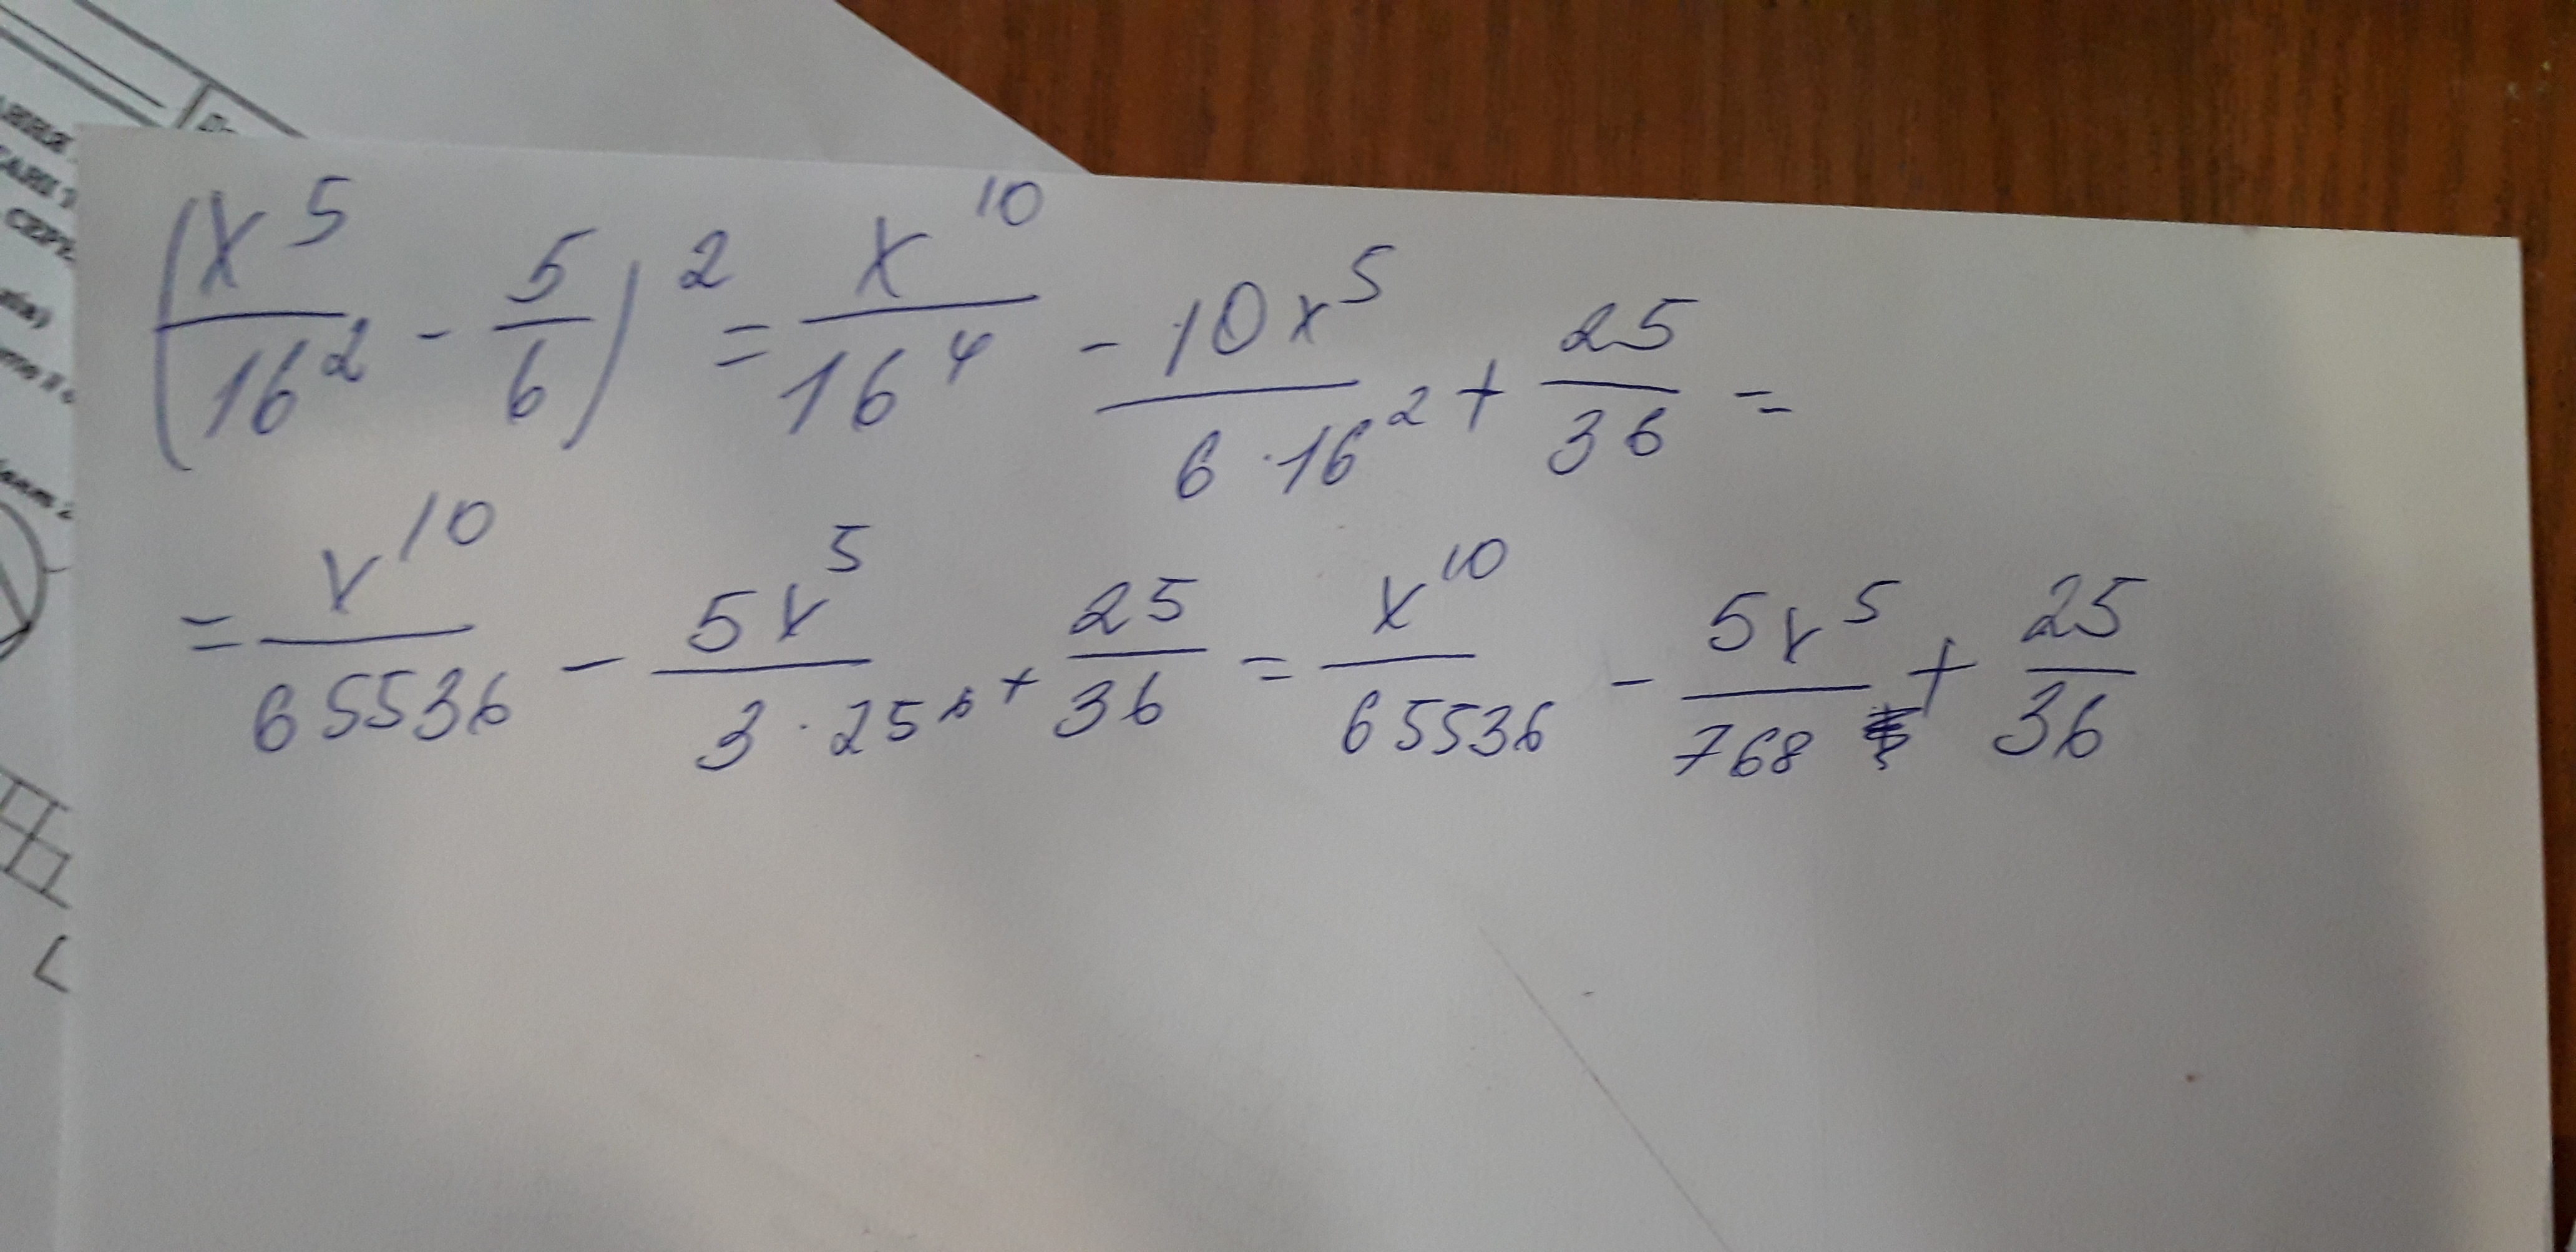 (x^5/16^2 - 5/6)^2 = x^10/16^4 - 10x^5/(6·16^2) + 25/36 =
= x^10/65536 - 5x^5/(3·256) + 25/36 = x^10/65536 - 5x^5/768 + 25/36